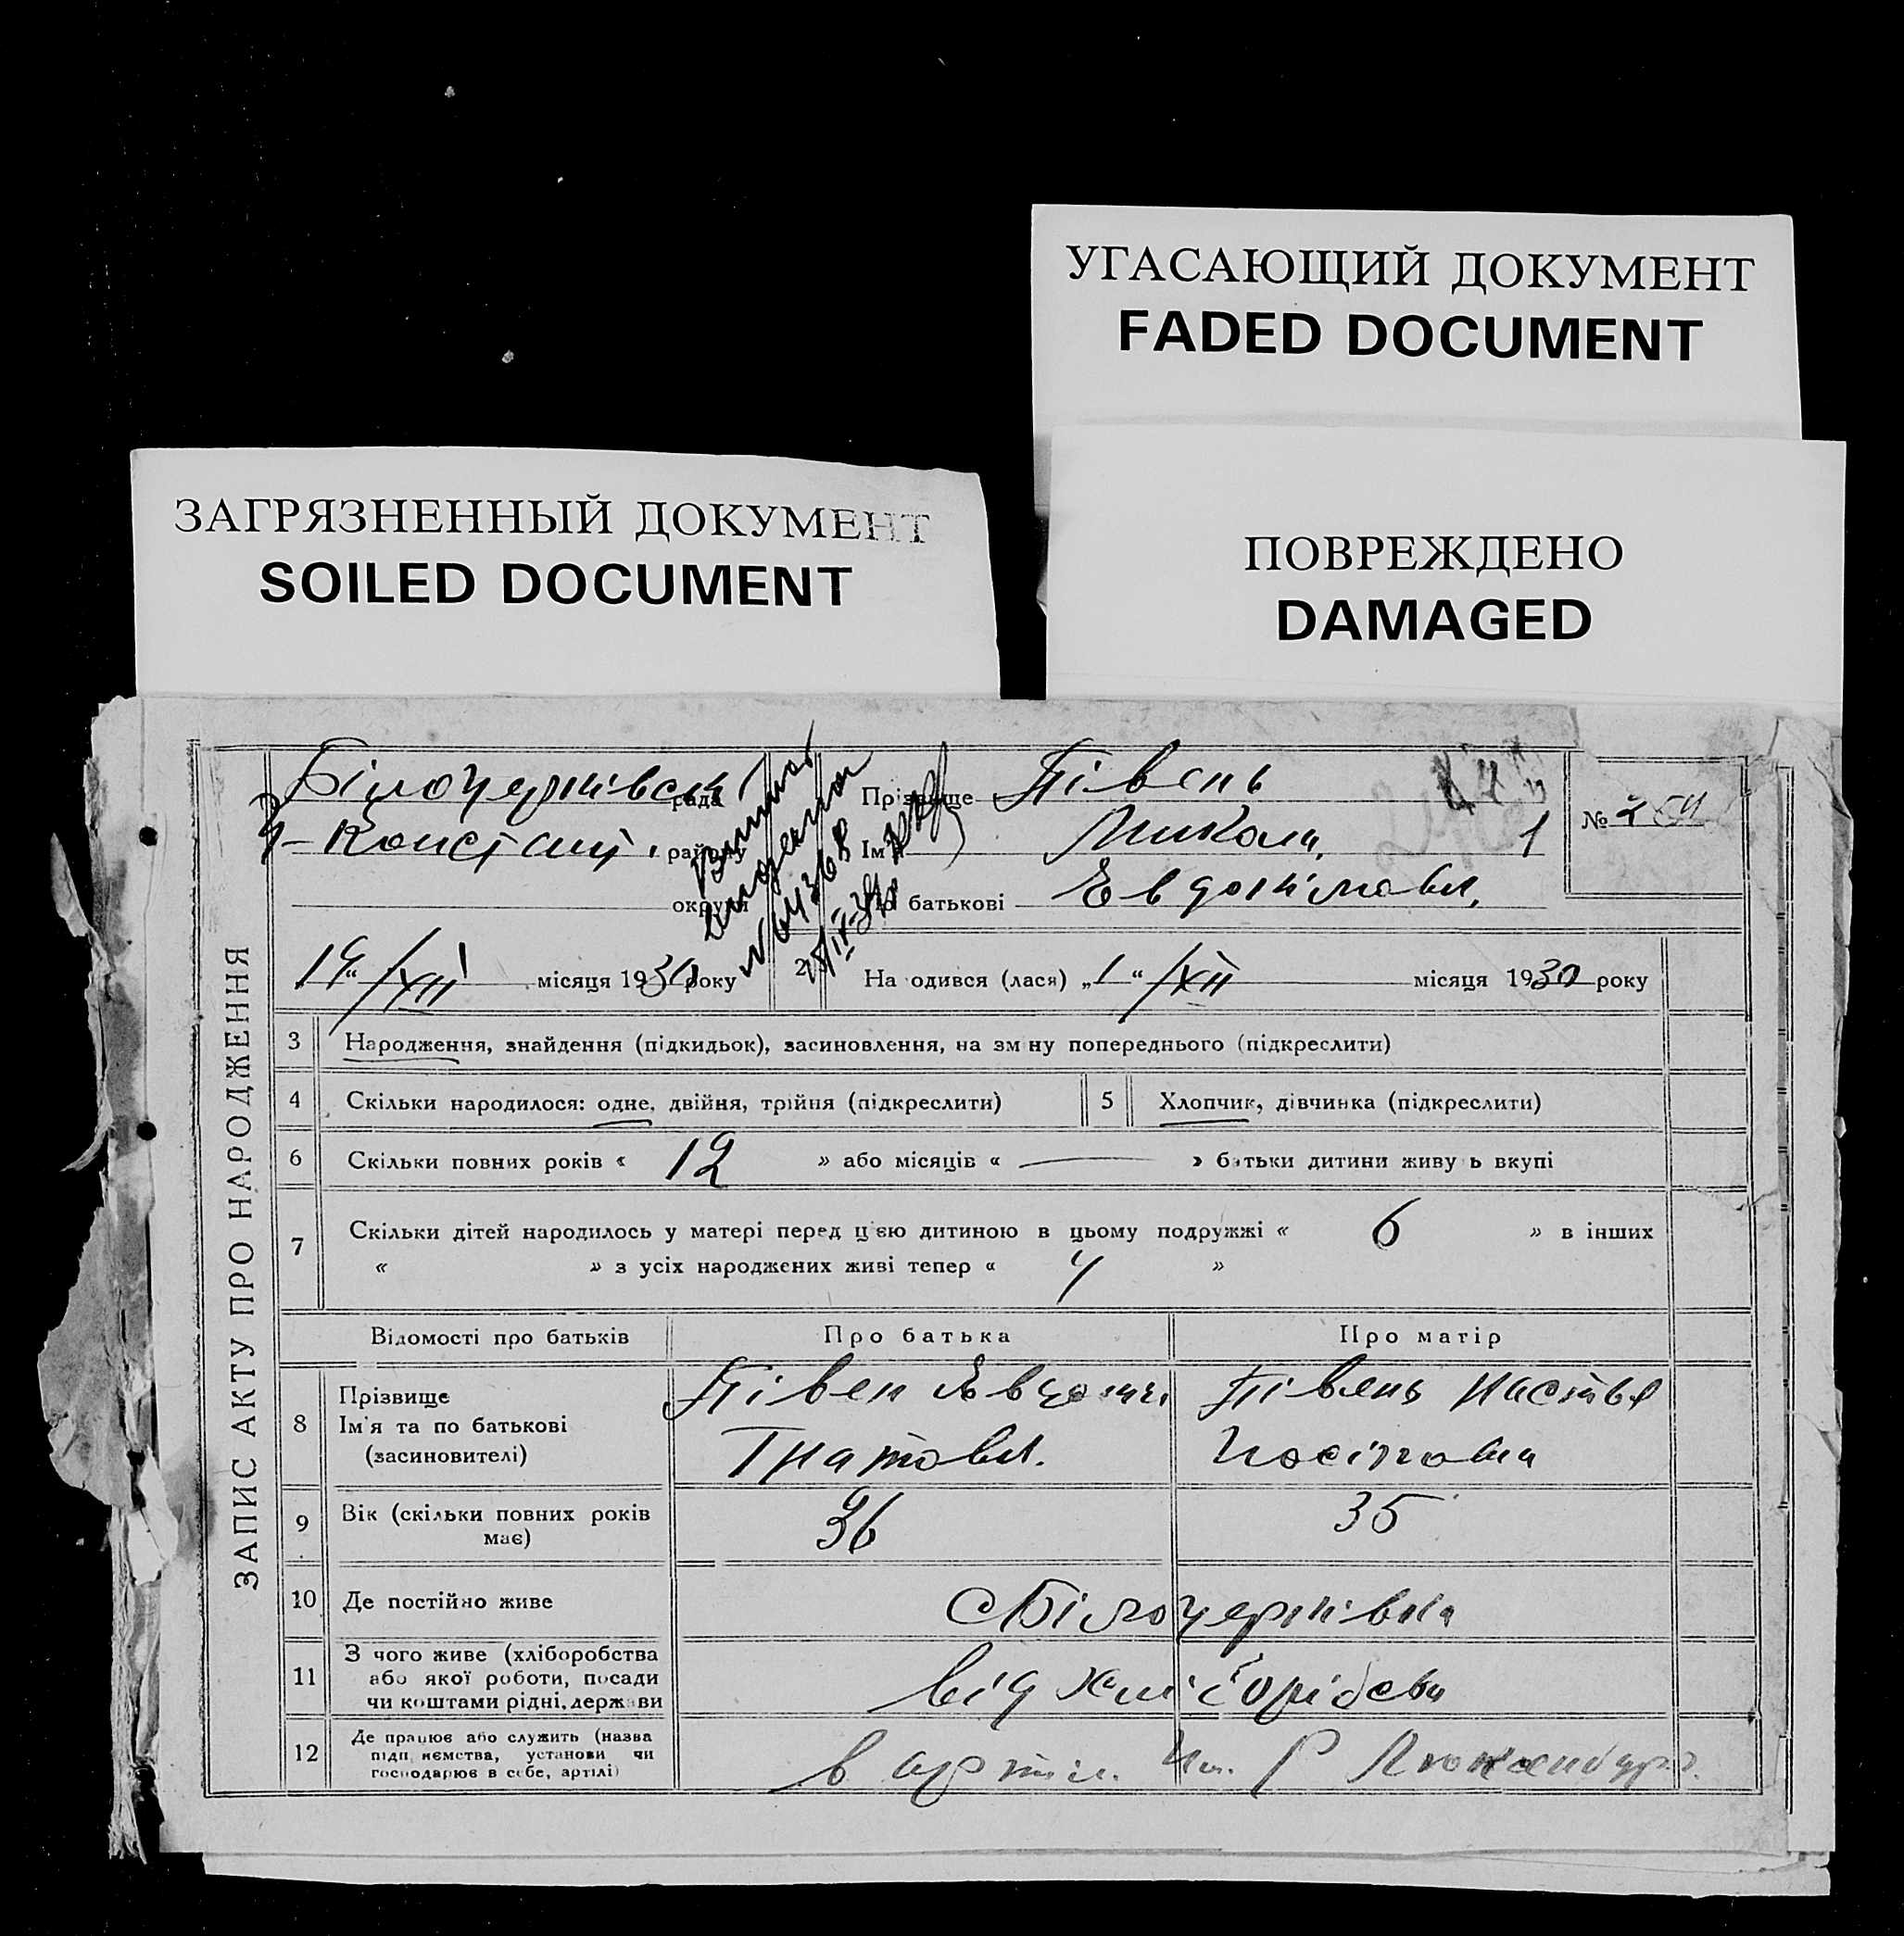 УГАСАЮЩИЙ ДОКУМЕНТ
FADED DOCUMENT
ЗАГРЯЗНЕННЫЙ ДОКУМЕНТ
SOILED DOCUMENT
ПОВРЕЖДЕНО
DAMAGED
ЗАПИС АКТУ ПРО НАРОДЖЕННЯ
Білочерківськ рада
району
округи
Прізвище Півень
Ім'я Микола 1
По батькові Евдокімович
№
„19“ /XII місяця 1930 року
2 Народився (лася) „1“ /XII місяця 1930 року
3 Народження, знайдення (підкидьок), засиновлення, на зміну попереднього (підкреслити)
4 Скільки народилося: одне, двійня, трійня (підкреслити)
5 Хлопчик, дівчинка (підкреслити)
6 Скільки повних років « 12 » або місяців « — » батьки дитини живуть вкупі
7 Скільки дітей народилось у матері перед цією дитиною в цьому подружжі « 6 » в інших
« » з усіх народжених живі тепер « 4 »
Відомості про батьків Про батька Про матір
8 Прізвище Півен Півень Настья
Ім'я та по батькові
(засиновителі) Ігнатович Иосіповна
9 Вік (скільки повних років має) 36 35
10 Де постійно живе с Білочерківка
11 З чого живе (хліборобства
або якої роботи, посади
чи коштами рідні, держави від хліборобства
12 Де працює або служить (назва
підприємства, установи чи
господарює в себе, артілі) в артіл. Им. Р Люксенбург.